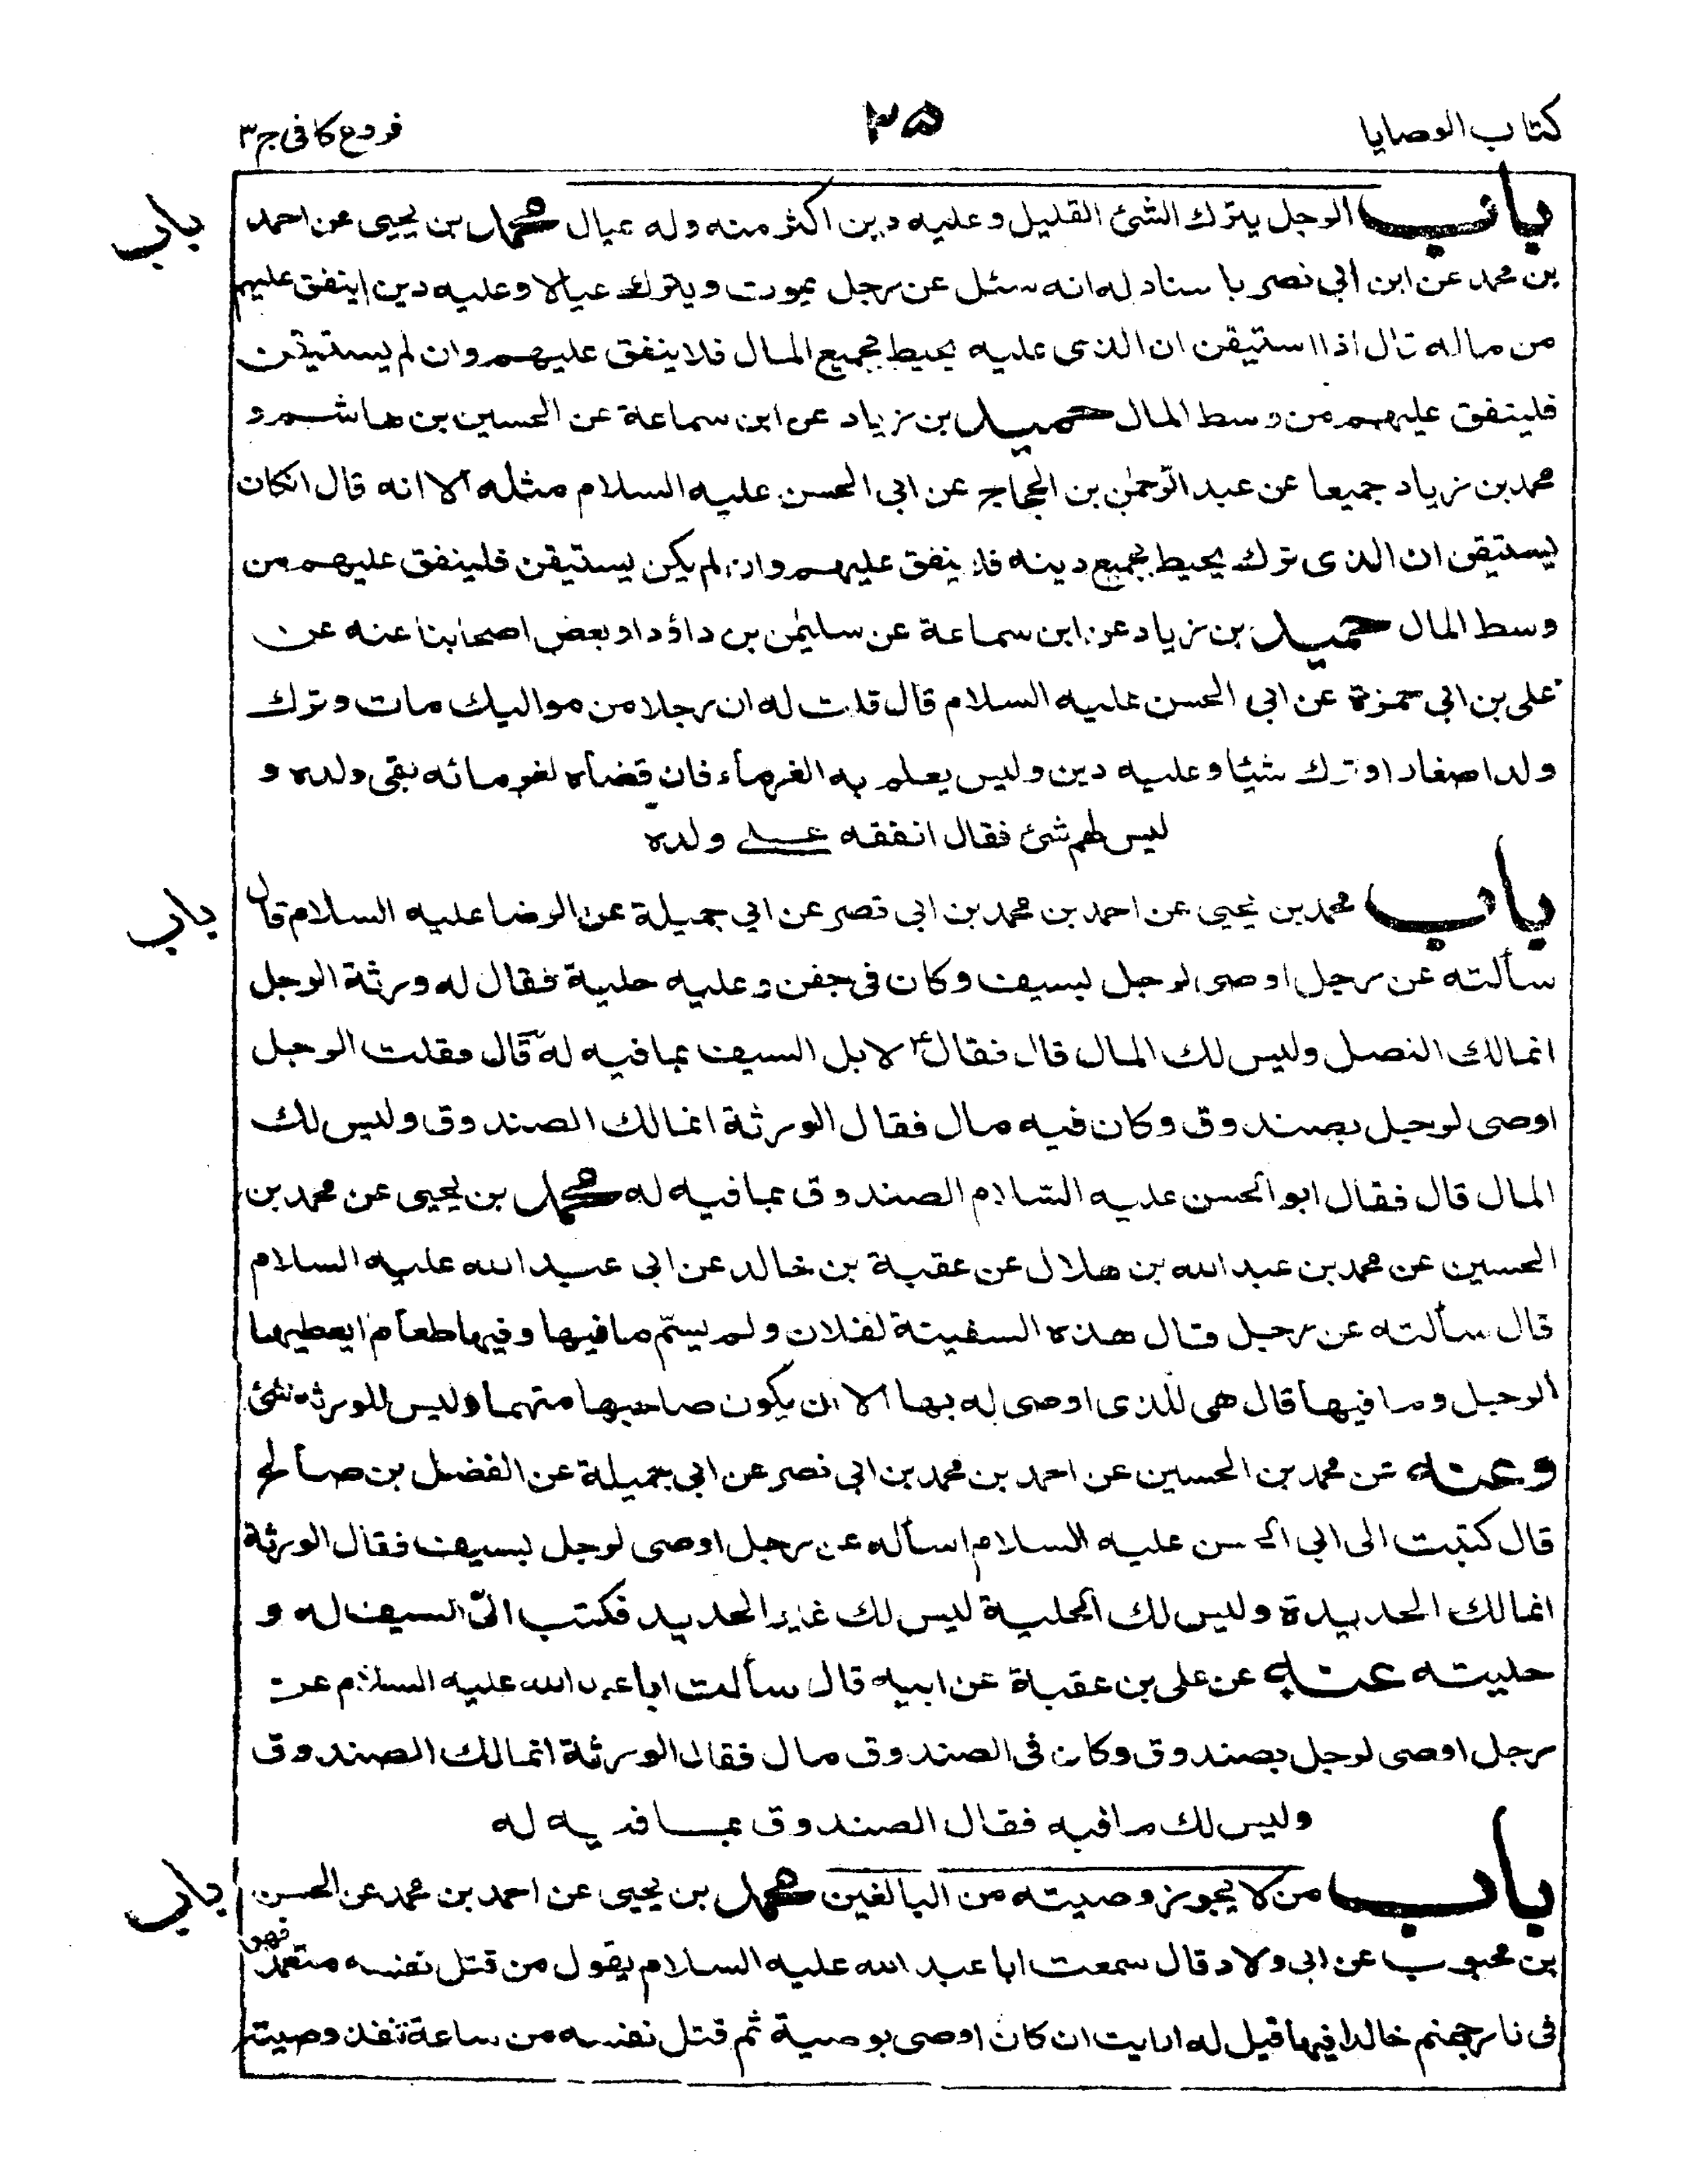 كتاب الوصايا
٣٥
فروع كافى ج٣
باب الرجل يترك الشئ القليل وعليه دين اكثر منه وله عيال محمد بن يحيى عن احمد
باب
بن محمد عن ابن أبي نصر با سناد له انه سئل عن رجل يموت ويترك عيالا وعليه دين اينفق عليهم
من ماله قال اذا استيقن ان الذى عليه يحيط بجميع المال فلا ينفق عليهم وان لم يستيقن
فلينفق عليهم من وسط المال حميد بن زياد عن ابن سماعة عن الحسين بن هاشم و
محمد بن زياد جميعا عن عبد الرّحمٰن بن الحجاج عن ابى الحسن عليه السلام مثله الا انه قال انكان
يستيقن ان الذى ترك يحيط بجميع دينه فلا ينفق عليهم وان لم يكن يستيقن فلينفق عليهم من
وسط المال حميد بن زياد عن ابن سماعة عن سليمٰن بن داؤد او بعض اصحابنا عنه عن
على بن ابي حمزة عن ابى الحسن عليه السلام قال قلت له ان رجلا من مواليك مات وترك
ولدا صغارا وترك شيئا وعليه دين وليس يعلم به الغرماء فان قضاه لغرمائه بقى ولده و
ليس لهم شئ فقال انفقه على ولده
باب محمد بن يحيى عن احمد بن محمد بن ابى نصر عن ابي جميلة عن الرضا عليه السلام قال
باب
سألته عن رجل اوصى لرجل بسيف وكان فى جفن وعليه حلية فقال له ورثة الرجل
انما لك النصل وليس لك المال قال فقال ع لا بل السيف بما فيه له قال فقلت الرجل
اوصى لرجل بصندوق وكان فيه مال فقال الورثة انما لك الصندوق وليس لك
المال قال فقال ابو الحسن عليه السّلام الصندوق بما فيه له محمد بن يحيى عن محمد بن
الحسين عن محمد بن عبد الله بن هلال عن عقبة بن خالد عن ابى عبد الله عليه السلام
قال سألته عن رجل قال هذه السفينة لفلان ولم يسمّ ما فيها وفيها طعام ايعطيها
الرجل وما فيها قال هى للّذى اوصى له بها الا ان يكون صاحبها متهما وليس للورثة شئ
وعنه عن محمد بن الحسين عن احمد بن محمد بن ابى نصر عن ابى جميلة عن الفضل بن صالح
قال كتبت الى ابى الحسن عليه السلام اسأله عن رجل اوصى لرجل بسيف فقال الورثة
انما لك الحديدة وليس لك الحلية ليس لك غير الحديد فكتب الىّ السيف له و
حليته عنه عن على بن عقبة عن ابيه قال سألت ابا عبد الله عليه السلام عن
رجل اوصى لرجل بصندوق وكان فى الصندوق مال فقال الورثة انما لك الصندوق
وليس لك ما فيه فقال الصندوق بما فيه له
باب من لا يجوز وصيته من البالغين محمد بن يحيى عن احمد بن محمد عن الحسن
باب
بن محبوب عن ابى ولاد قال سمعت ابا عبد الله عليه السلام يقول من قتل نفسه متعمدا فهو
فى نار جهنم خالدا فيها قيل له ارايت ان كان اوصى بوصية ثم قتل نفسه من ساعة تنفذ وصيته